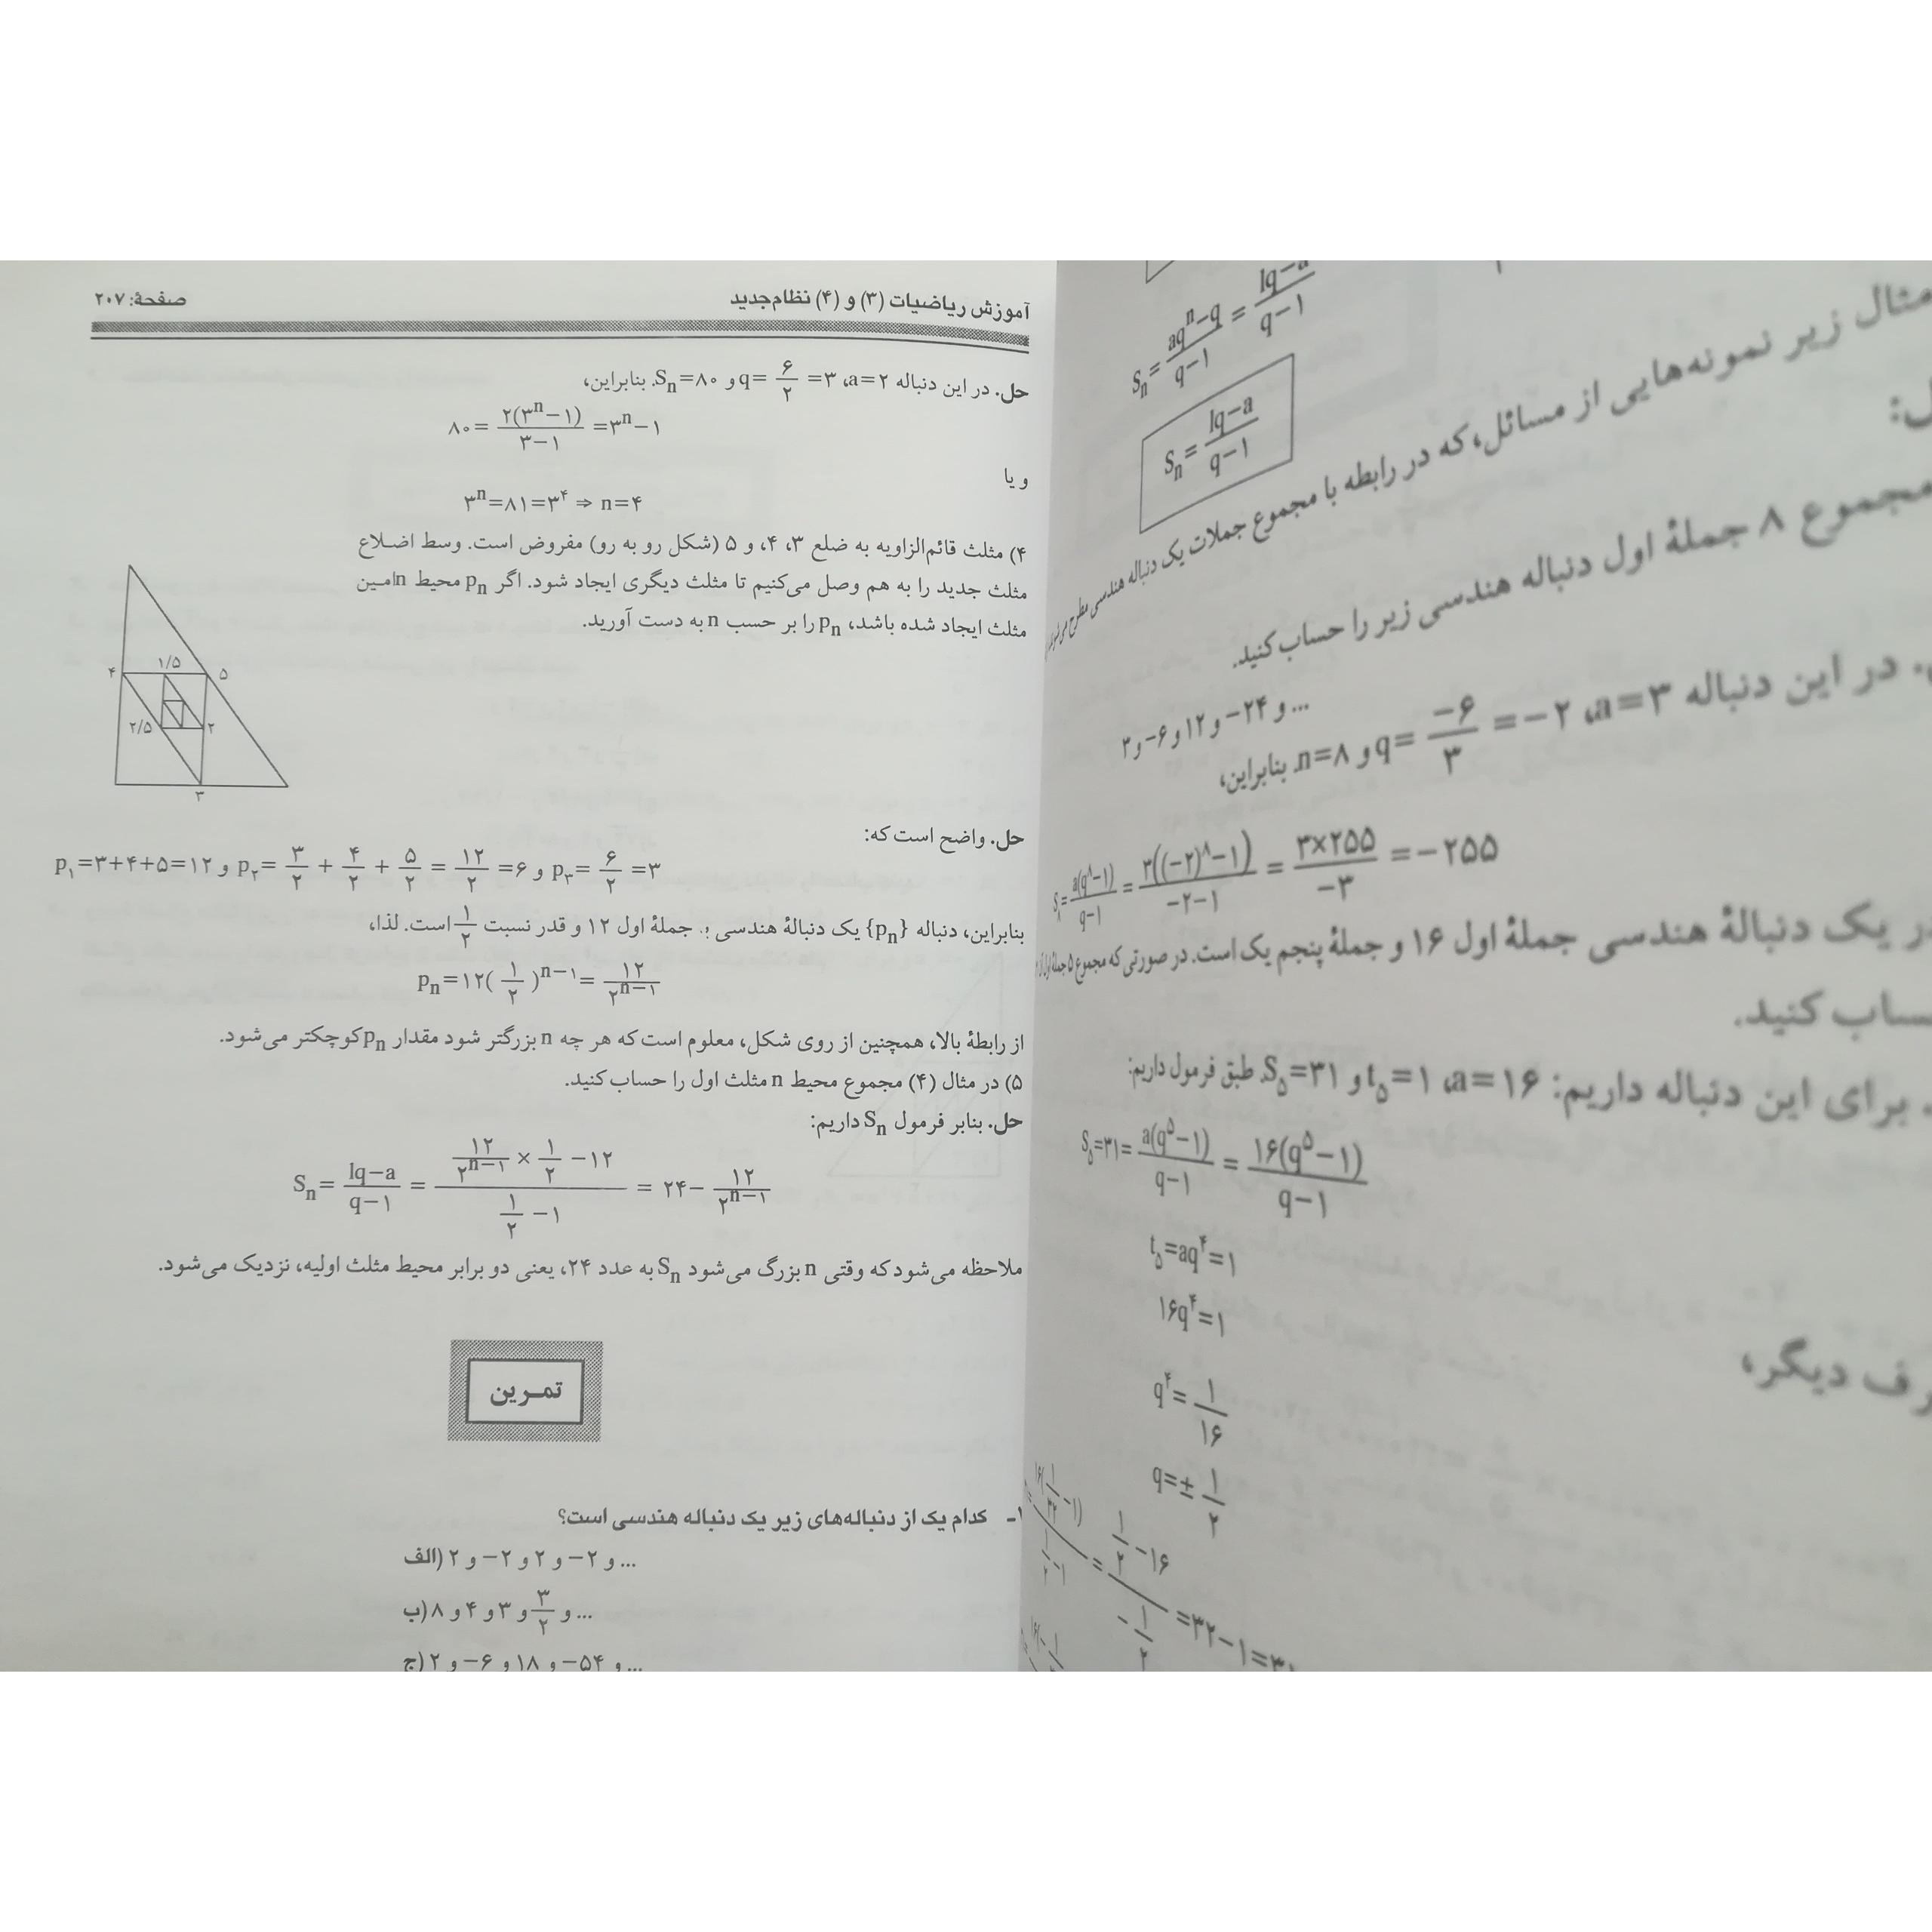 S_n = (aq^n − q)/(q−۱) = (lq−a)/(q−۱)
S_n = (lq−a)/(q−۱)
مثال زیر نمونه‌هایی از مسائل، که در رابطه با مجموع جملات یک دنباله هندسی مطرح
مجموع ۸ جملهٔ اول دنباله هندسی زیر را حساب کنید.
۳ و ۶− و ۱۲ و ۲۴− و ...
در این دنباله a=۳، q= −۶/۳ = −۲ و n=۸. بنابراین،
S_۸ = a(q^۸−۱)/(q−۱) = ۳((−۲)^۸−۱)/(−۲−۱) = ۳×۲۵۵/−۳ = −۲۵۵
در یک دنبالهٔ هندسی جملهٔ اول ۱۶ و جملهٔ پنجم یک است. در صورتی که مجموع ۵ جملهٔ اول
حساب کنید.
برای این دنباله داریم: a=۱۶، t_۵=۱ و S_۵=۳۱. طبق فرمول داریم:
S_۵=۳۱= a(q^۵−۱)/(q−۱) = ۱۶(q^۵−۱)/(q−۱)
دیگر،
t_۵=aq^۴=۱
۱۶q^۴=۱
q^۴= ۱/۱۶
q=± ۱/۲
= (۱/۲ −۱۶)/(−۱/۲) =۳۲−۱=۳۱
آموزش ریاضیات (۳) و (۴) نظام‌جدید
صفحهٔ: ۲۰۷
حل. در این دنباله a=۲، q= ۶/۲ =۳ و S_n=۸۰. بنابراین،
۸۰= ۲(۳^n−۱)/(۳−۱) =۳^n−۱
و یا
۳^n=۸۱=۳^۴ ⇒ n=۴
۴) مثلث قائم‌الزاویه به ضلع ۳، ۴، و ۵ (شکل رو به رو) مفروض است. وسط اضـلاع
مثلث جدید را به هم وصل می‌کنیم تا مثلث دیگری ایجاد شود. اگر p_n محیط nامـین
مثلث ایجاد شده باشد، p_n را بر حسب n به دست آورید.
۴ ۱/۵ ۵
۲/۵ ۲
۳
حل. واضح است که:
p_۱=۳+۴+۵=۱۲ و p_۲= ۳/۲ + ۴/۲ + ۵/۲ = ۱۲/۲ =۶ و p_۳= ۶/۲ =۳
بنابراین، دنباله {p_n} یک دنبالهٔ هندسی جملهٔ اول ۱۲ و قدر نسبت ۱/۲ است. لذا،
p_n=۱۲(۱/۲)^{n−۱}= ۱۲/۲^{n−۱}
از رابطهٔ بالا، همچنین از روی شکل، معلوم است که هر چه n بزرگتر شود مقدار p_n کوچکتر می‌شود.
۵) در مثال (۴) مجموع محیط n مثلث اول را حساب کنید.
حل. بنابر فرمول S_n داریم:
S_n= (lq−a)/(q−۱) = (۱۲/۲^{n−۱} × ۱/۲ −۱۲)/(۱/۲ −۱) = ۲۴− ۱۲/۲^{n−۱}
ملاحظه می‌شود که وقتی n بزرگ می‌شود S_n به عدد ۲۴، یعنی دو برابر محیط مثلث اولیه، نزدیک می‌شود.
تمـرین
۱- کدام یک از دنباله‌های زیر یک دنباله هندسی است؟
الف) ۲ و ۲− و ۲ و ۲− و ...
ب) ۸ و ۴ و ۳ و ۳/۲ و ...
ج) ۲ و ۶− و ۱۸ و ۵۴− و ...